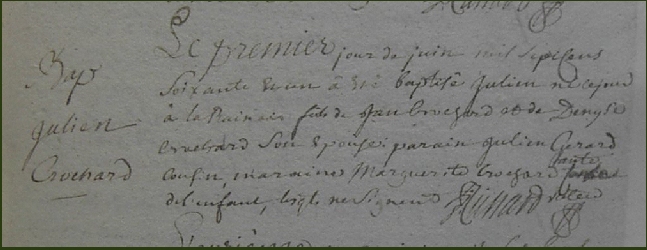 Bap
Julien
Crochard
Le premier jour de juin mil sept cens
soixante & un a été baptisé Julien né ce jour
à la fils de Jan Crochard et de Denyse
Crochard son epouse parain Julien Gerard
cousin, maraine Marguerite Crochard tante
de l'enfant, lesqls ne signent